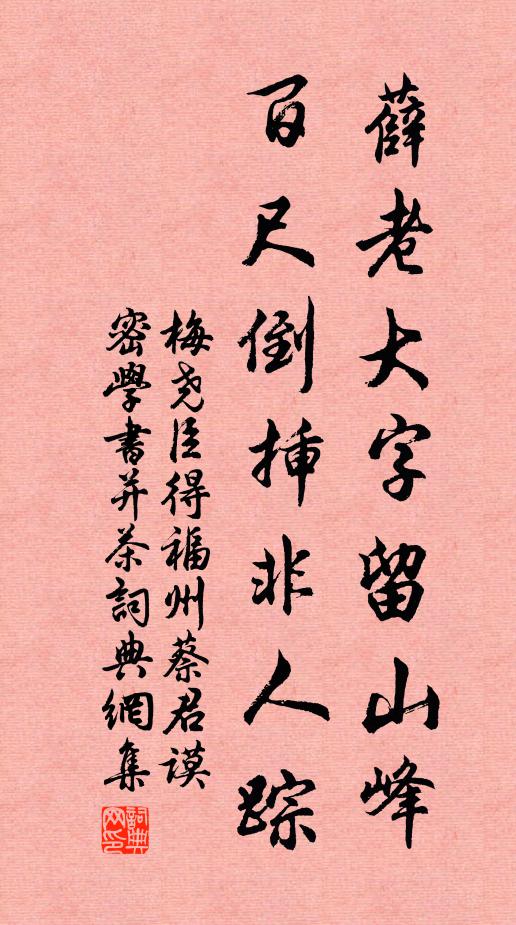 薛老大字留山峰
百尺倒插非人踪
梅尧臣得福州蔡君谟
密學書并茶詞典網集
詞典
网印